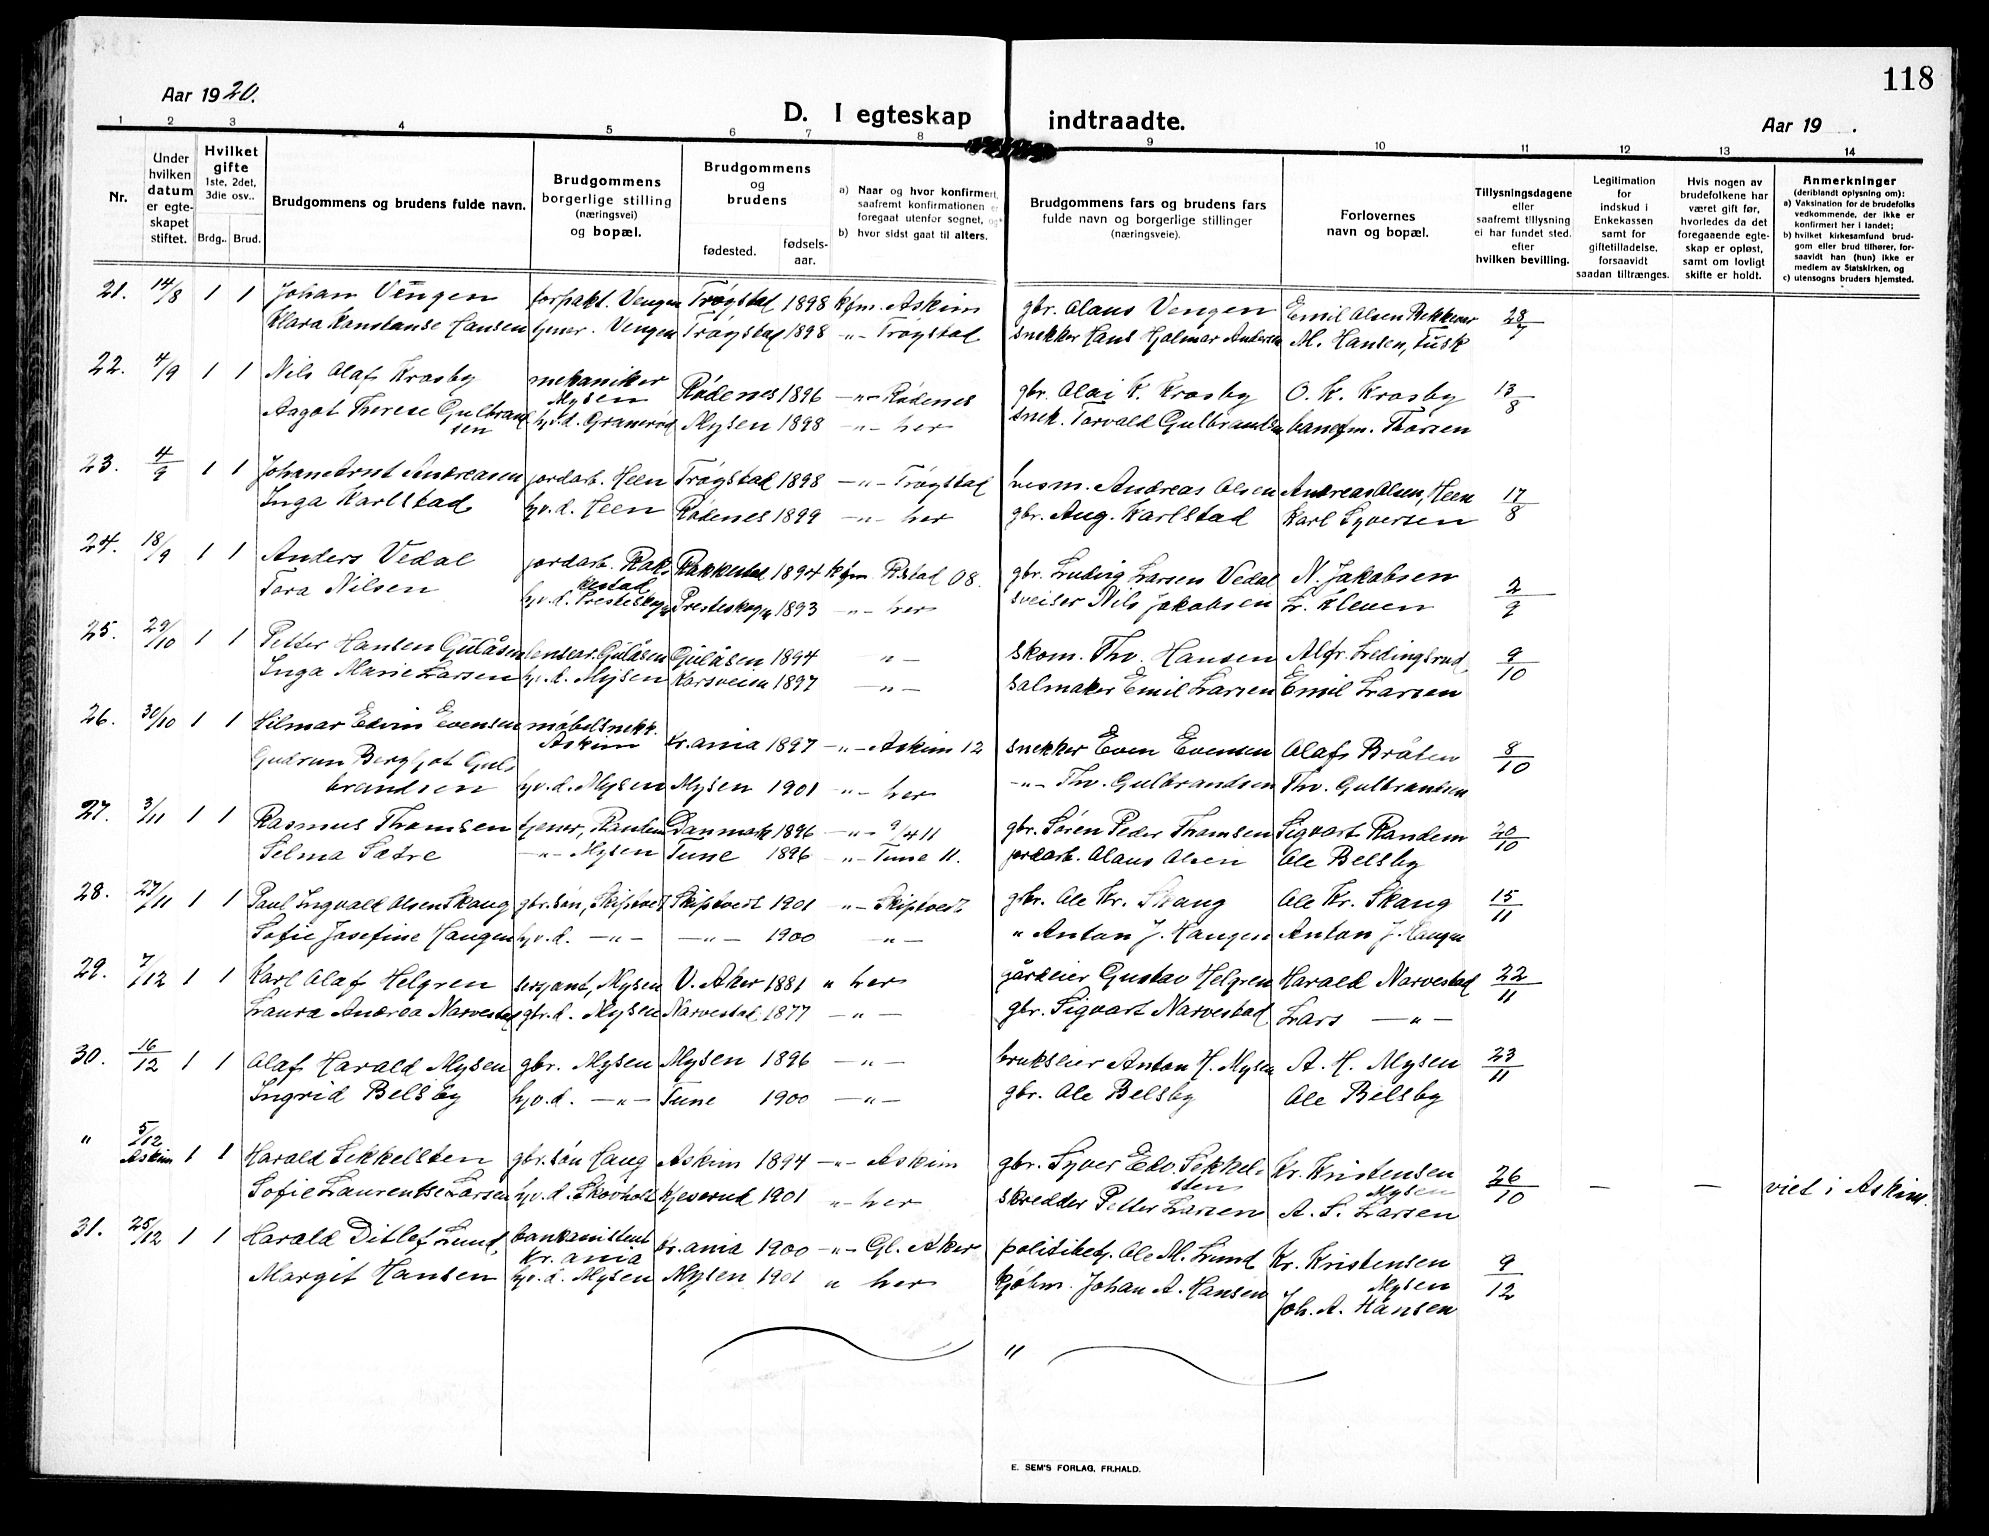 118
Aar 1920.
D. I egteskap indtraadte.
Aar 19 .
1 2 3 4 5 6 7 8 9 10 11 12 13 14
Nr.
Under hvilken datum er egteskapet stiftet.
Hvilket gifte 1ste, 2det, 3die osv..
Brdg.. Brud.
Brudgommens og brudens fulde navn.
Brudgommens borgerlige stilling (næringsvei) og bopæl.
Brudgommens og brudens
fødested. fødsels-aar.
a) Naar og hvor konfirmert, saafremt konfirmationen er foregaat utenfor sognet, og
b) hvor sidst gaat til alters.
Brudgommens fars og brudens fars fulde navn og borgerlige stillinger (næringsveie).
Forlovernes navn og bopæl.
Tillysningsdagene eller saafremt tillysning ei har fundet sted, efter hvilken bevilling.
Legitimation for indskud i Enkekassen samt for giftetilladelse, forsaavidt saadan tiltrænges.
Hvis nogen av brudefolkene har været gift før, hvorledes da det foregaaende egteskap er opløst, samt om lovligt skifte er holdt.
Anmerkninger (deriblandt oplysning om):
a) Vaksination for de brudefolks vedkommende, der ikke er konfirmert her i landet;
b) hvilket kirkesamfund brudgom eller brud tilhører, forsaavidt han (hun) ikke er medlem av Statskirken, og
c) utensogns bruders hjemsted.
21. 14/8 1 1 Johan Vengen forpakt. Vengen Trøgstad 1898 kfm. Askim gbr. Olaus Vengen Emil Olsen Rekkevar 28/7
Klara Konstanse Hansen tjener. Vengen Trøgstad 1898 -"- Trøgstad snekker Hans Hjalmar Andersen M. Hansen, Tusk
22. 4/9 1 1 Nils Olaf Krosby mekaniker Mysen Rødenes 1896 -"- Rødenes gbr. Olai K. Krosby O. K. Krosby 13/8
Aagot Therese Gulbrandsen hv.d. Granerød Mysen 1898 -"- her snek. Torvald Gulbrandsen banefm. Thorsen
23. 4/9 1 1 Johan Arnt Andreasen jordarb. Heen Trøgstad 1898 -"- Trøgstad husm. Andreas Olsen Andreas Olsen, Heen 17/8
Inga Karlstad hv.d. Heen Rødenes 1899 -"- her gbr. Aug. Karlstad Karl Syversen
24. 18/9 1 1 Anders Vedal jordarb. Rakkestad Rakkestad 1894 kfm. R.stad 08. gbr. Ludvig Larsen Vedal N. Jakobsen 2/9
Tora Nilsen hv.d. Presteskogn Presteskogn 1893 -"- her sveiser Nils Jakobsen L. Kleven
25. 29/10 1 1 Petter Hansen Gulåsen Gulåsen Gulåsen 1894 -"- skom. Th. Hansen Alfr. Ledingsrud 9/10
Inga Marie Larsen hv.d. Mysen Karsveien 1897 -"- salmaker Emil Larsen Emil Larsen
26. 30/10 1 1 Hilmar Edvin Evensen møbelsnekk. Askim Kr.ania 1897 -"- Askim 12 snekker Even Evensen Olaf Bråten 8/10
Gudrun Bergljot Gulbrandsen hv.d. Mysen Mysen 1901 -"- her -"- Th. Gulbrandsen Th. Gulbrandsen
27. 3/11 1 1 Rasmus Thomsen tjener, Randem Danmark 1896 -"- 9/4 11 gbr. Søren Peder Thomsen Sigvart Randem 20/10
Selma Sætre -"- Mysen Tune 1896 -"- Tune 11. jordarb. Olaus Olsen Ole Belsby
28. 27/11 1 1 Paul Ingvald Olsen Skaug gbr.søn, Skiptvet Skiptvedt 1901 -"- Skiptvedt gbr. Ole Kr. Skaug Ole Kr. Skaug 15/11
Sofie Josefine Haugen hv.d. -"- -"- 1900 -"- " Anton J. Haugen Anton J. Haugen
29. 7/12 1 1 Karl Olaf Helgren serjant, Mysen V. Aker 1881 " her gårdeier Gustav Helgren Harald Narvestad 22/11
Laura Andrea Narvestad gbr.d. Mysen Narvestad 1877 -"- gbr. Sigvart Narvestad Lars -"-
30. 16/12 1 1 Olaf Harald Mysen gbr. Mysen Mysen 1896 -"- brukseier Anton H. Mysen A. H. Mysen 23/11
Ingrid Belsby hv.d. -"- Tune 1900 -"- gbr. Ole Belsby Ole Belsby
" 5/12 Askim 1 1 Harald Sekkelsten gbr.søn Haug Askim 1894 -"- Askim gbr. Syver Edv. Sekkelsten Kr. Kristensen Mysen 26/10 — — viet i Askim.
Sofie Laurentse Larsen hv.d. Skovholt Kjeserud 1901 " her skredder Petter Larsen A. S. Larsen
31. 25/12 1 1 Harald Ditlef Lund, bankasistent Kr.ania Kr.ania 1900 -"- Gl. Aker politibetj. Ole M. Lund Kr. Kristensen Mysen 9/12
Margit Hansen hv.d. Mysen Mysen 1901 " her kjøbm. Johan A. Hansen Joh. A. Hansen
"
E. SEM'S FORLAG, FR.HALD.